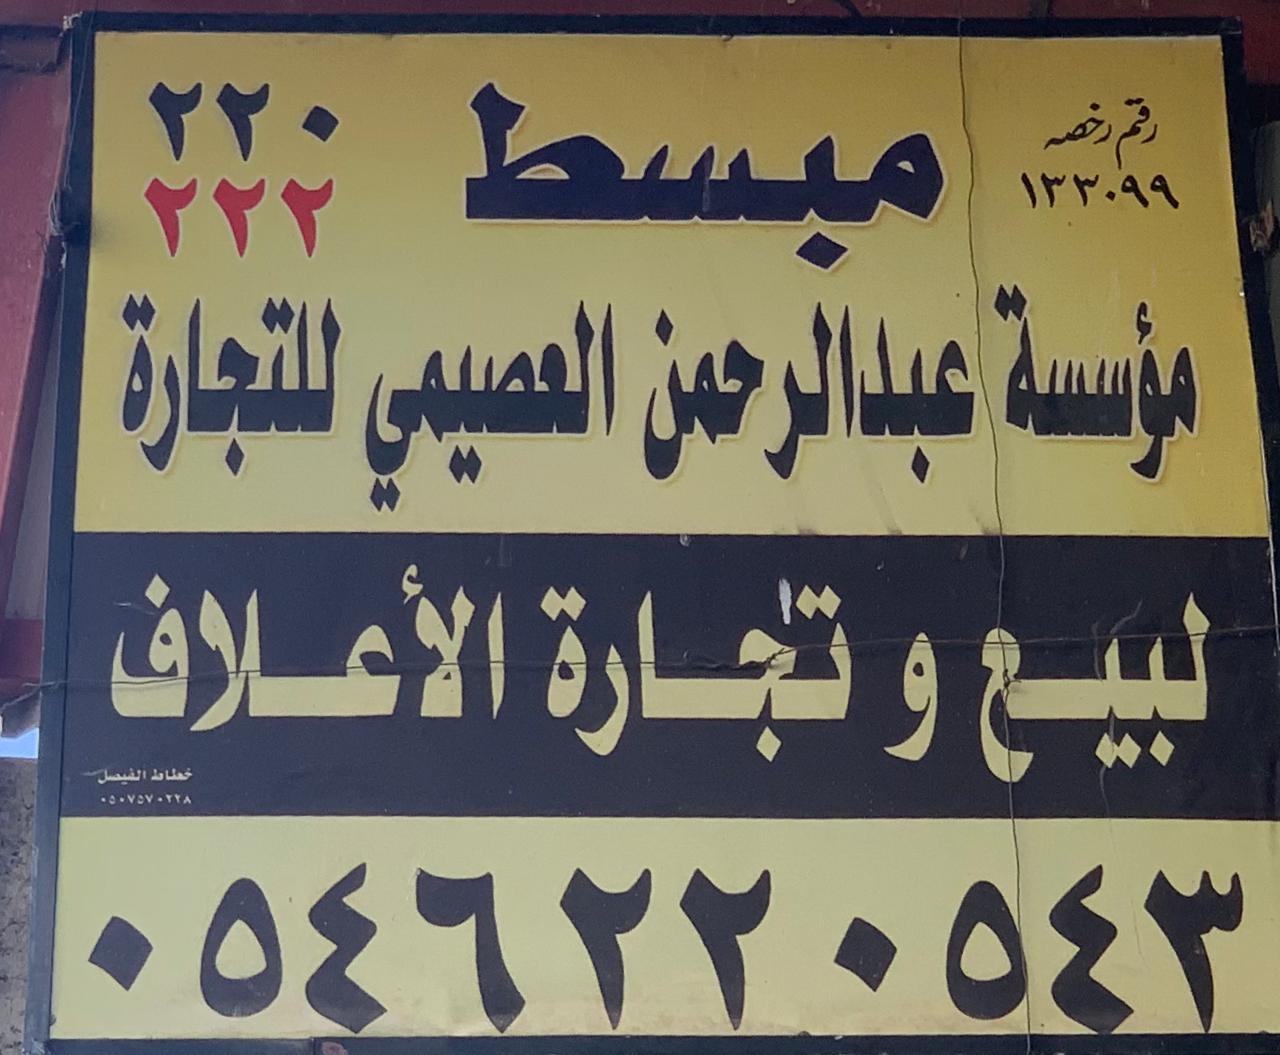 رقم رخصه
١٣٣٠٩٩
مبسط
٢٢٠
٢٢٢
مؤسسة عبدالرحمن العصيمي للتجارة
لبيع و تجارة الأعلاف
خطاط الفيصل
٠٥٠٧٥٧٠٢٢٨
٠٥٤٦٢٢٠٥٤٣